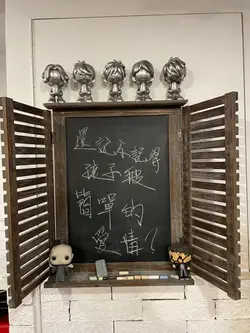 還記不記得
孩子般
簡單的
愛情?